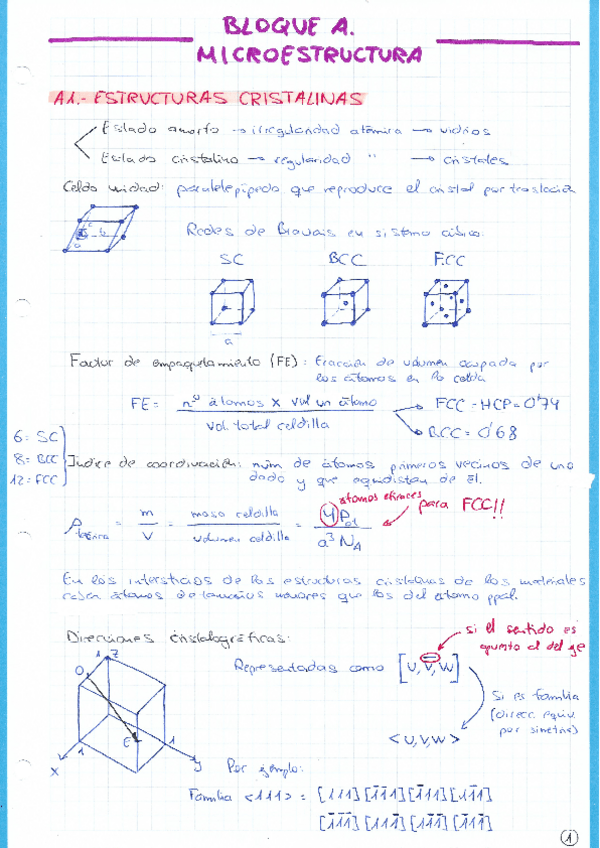 BLOQUE A.
MICROESTRUCTURA
A1.- ESTRUCTURAS CRISTALINAS
Estado amorfo → irregularidad atómica → vidrios
Estado cristalino → regularidad " → cristales
Celda unidad: paralelepípedo que reproduce el cristal por traslación
Redes de Bravais en sistema cúbico:
SC BCC FCC
a
Factor de empaquetamiento (FE): Fracción de volumen ocupada por
los átomos en la celda
FE = nº átomos x vol un átomo / vol total celdilla
FCC - HCP = 0'74
BCC = 0'68
6 = SC
8 = BCC
12 = FCC
Índice de coordinación: núm de átomos primeros vecinos de uno
dado y que equidistan de él.
ρ teórica = m / V = masa celdilla / volumen celdilla = 4 Pat / a³ NA
átomos eficaces
para FCC!!
En los intersticios de las estructuras cristalinas de los materiales
caben átomos de tamaños menores que los del átomo ppal.
Direcciones cristalográficas:
Representadas como [U, V̄, W]
si el sentido es
opuesto al del eje
Si es familia
(direcc. equiv.
por simetría)
<U,V,W>
1 Z
O
E
1 1
X y
Por ejemplo:
Familia <111> = [111] [1̄1̄1] [1̄11] [11̄1]
[1̄1̄1̄] [111̄] [11̄1̄] [1̄11̄]
1